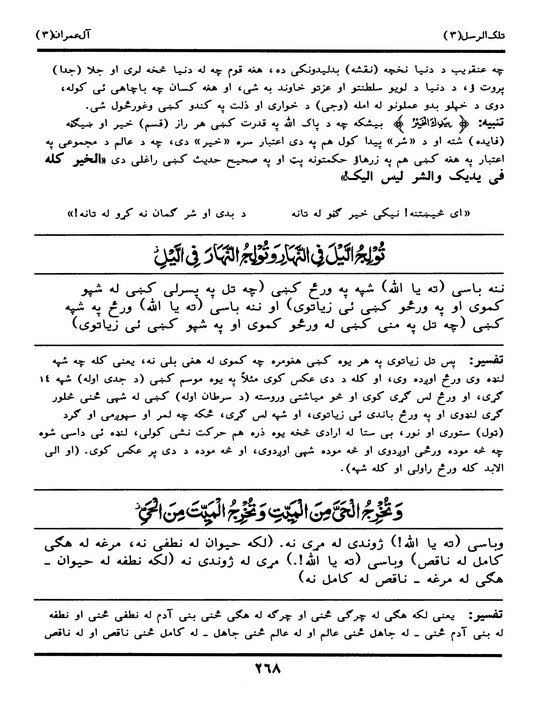 تلک الرسل(٣) آل عمران(٣)
چه عنقریب د دنیا نخچه (نقشه) بدلیدونکې ده، هغه قوم چه له دنیا څخه لری او جلا (جدا)
پروت ؤ، د دنیا د لویو سلطنتو او عزتو خاوند به شی، او هغه کسان چه باچاهی ئی کوله،
دوی د خپلو بدو عملونو له امله (وجی) د خواری او ذلت په کندو کښی وغورځول شی.
تنبیه: ﴿ بِيَدِكَ الْخَيْرُ ﴾ بیشکه چه د پاک الله په قدرت کښی هر راز (قسم) خیر او ښیګڼه
(فایده) شته او د «شر» پیدا کول هم په دی اعتبار سره «خیر» دی، چه د عالم د مجموعی په
اعتبار په هغه کښی هم په زرهاؤ حکمتونه پټ او په صحیح حدیث کښی راغلی دی «الخیر کله
فی یدیک والشر لیس الیک»
«ای څیښتنه! نیکی خیر ګڼو له تانه د بدی او شر ګمان نه کړو له تانه!»
تُوْلِجُ الَّيْلَ فِي النَّهَارِ وَتُوْلِجُ النَّهَارَ فِي الَّيْلِ
ننه باسی (ته یا الله) شپه په ورځ کښی (چه تل په پسرلی کښی له شپو
کموی او په ورځو کښی ئی زیاتوی) او ننه باسی (ته یا الله) ورځ په شپه
کښی (چه تل په منی کښی له ورځو کموی او په شپو کښی ئی زیاتوی)
تفسیر: پس تل زیاتوی په هر یوه کښی هغومره چه کموی له هغی بلی نه، یعنی کله چه شپه
لنډه وی ورځ اوږده وی، او کله د دی عکس کوی مثلاً په یوه موسم کښی (د جدی اوله) شپه ١٤
ګړی، او ورځ لس ګړی کوی او څو میاشتی وروسته (د سرطان اوله) کښی له شپی څنی څلور
ګړی لنډوی او په ورځ باندی ئی زیاتوی، او شپه لس ګړی، ځکه چه لمر او سپوږمی او ګرد
(ټول) ستوری او نور، بی ستا له ارادی څخه یوه ذره هم حرکت نشی کولی، لنډه ئی داسی شوه
چه څه موده ورځی اوږدوی او څه موده شپی اوږدوی، او څه موده د دی پر عکس کوی. (او الی
الابد کله ورځ راولی او کله شپه).
وَتُخْرِجُ الْحَيَّ مِنَ الْمَيِّتِ وَتُخْرِجُ الْمَيِّتَ مِنَ الْحَيِّ
وباسی (ته یا الله!) ژوندی له مړی نه. (لکه حیوان له نطفی نه، مرغه له هګی
کامل له ناقص) وباسی (ته یا الله!.) مړی له ژوندی نه (لکه نطفه له حیوان ـ
هګی له مرغه ـ ناقص له کامل نه)
تفسیر: یعنی لکه هګی له چرګی څنی او چرګه له هګی څنی بنی آدم له نطفی څنی او نطفه
له بنی آدم څنی ـ له جاهل څنی عالم او له عالم څنی جاهل ـ له کامل څنی ناقص او له ناقص
٢٦٨